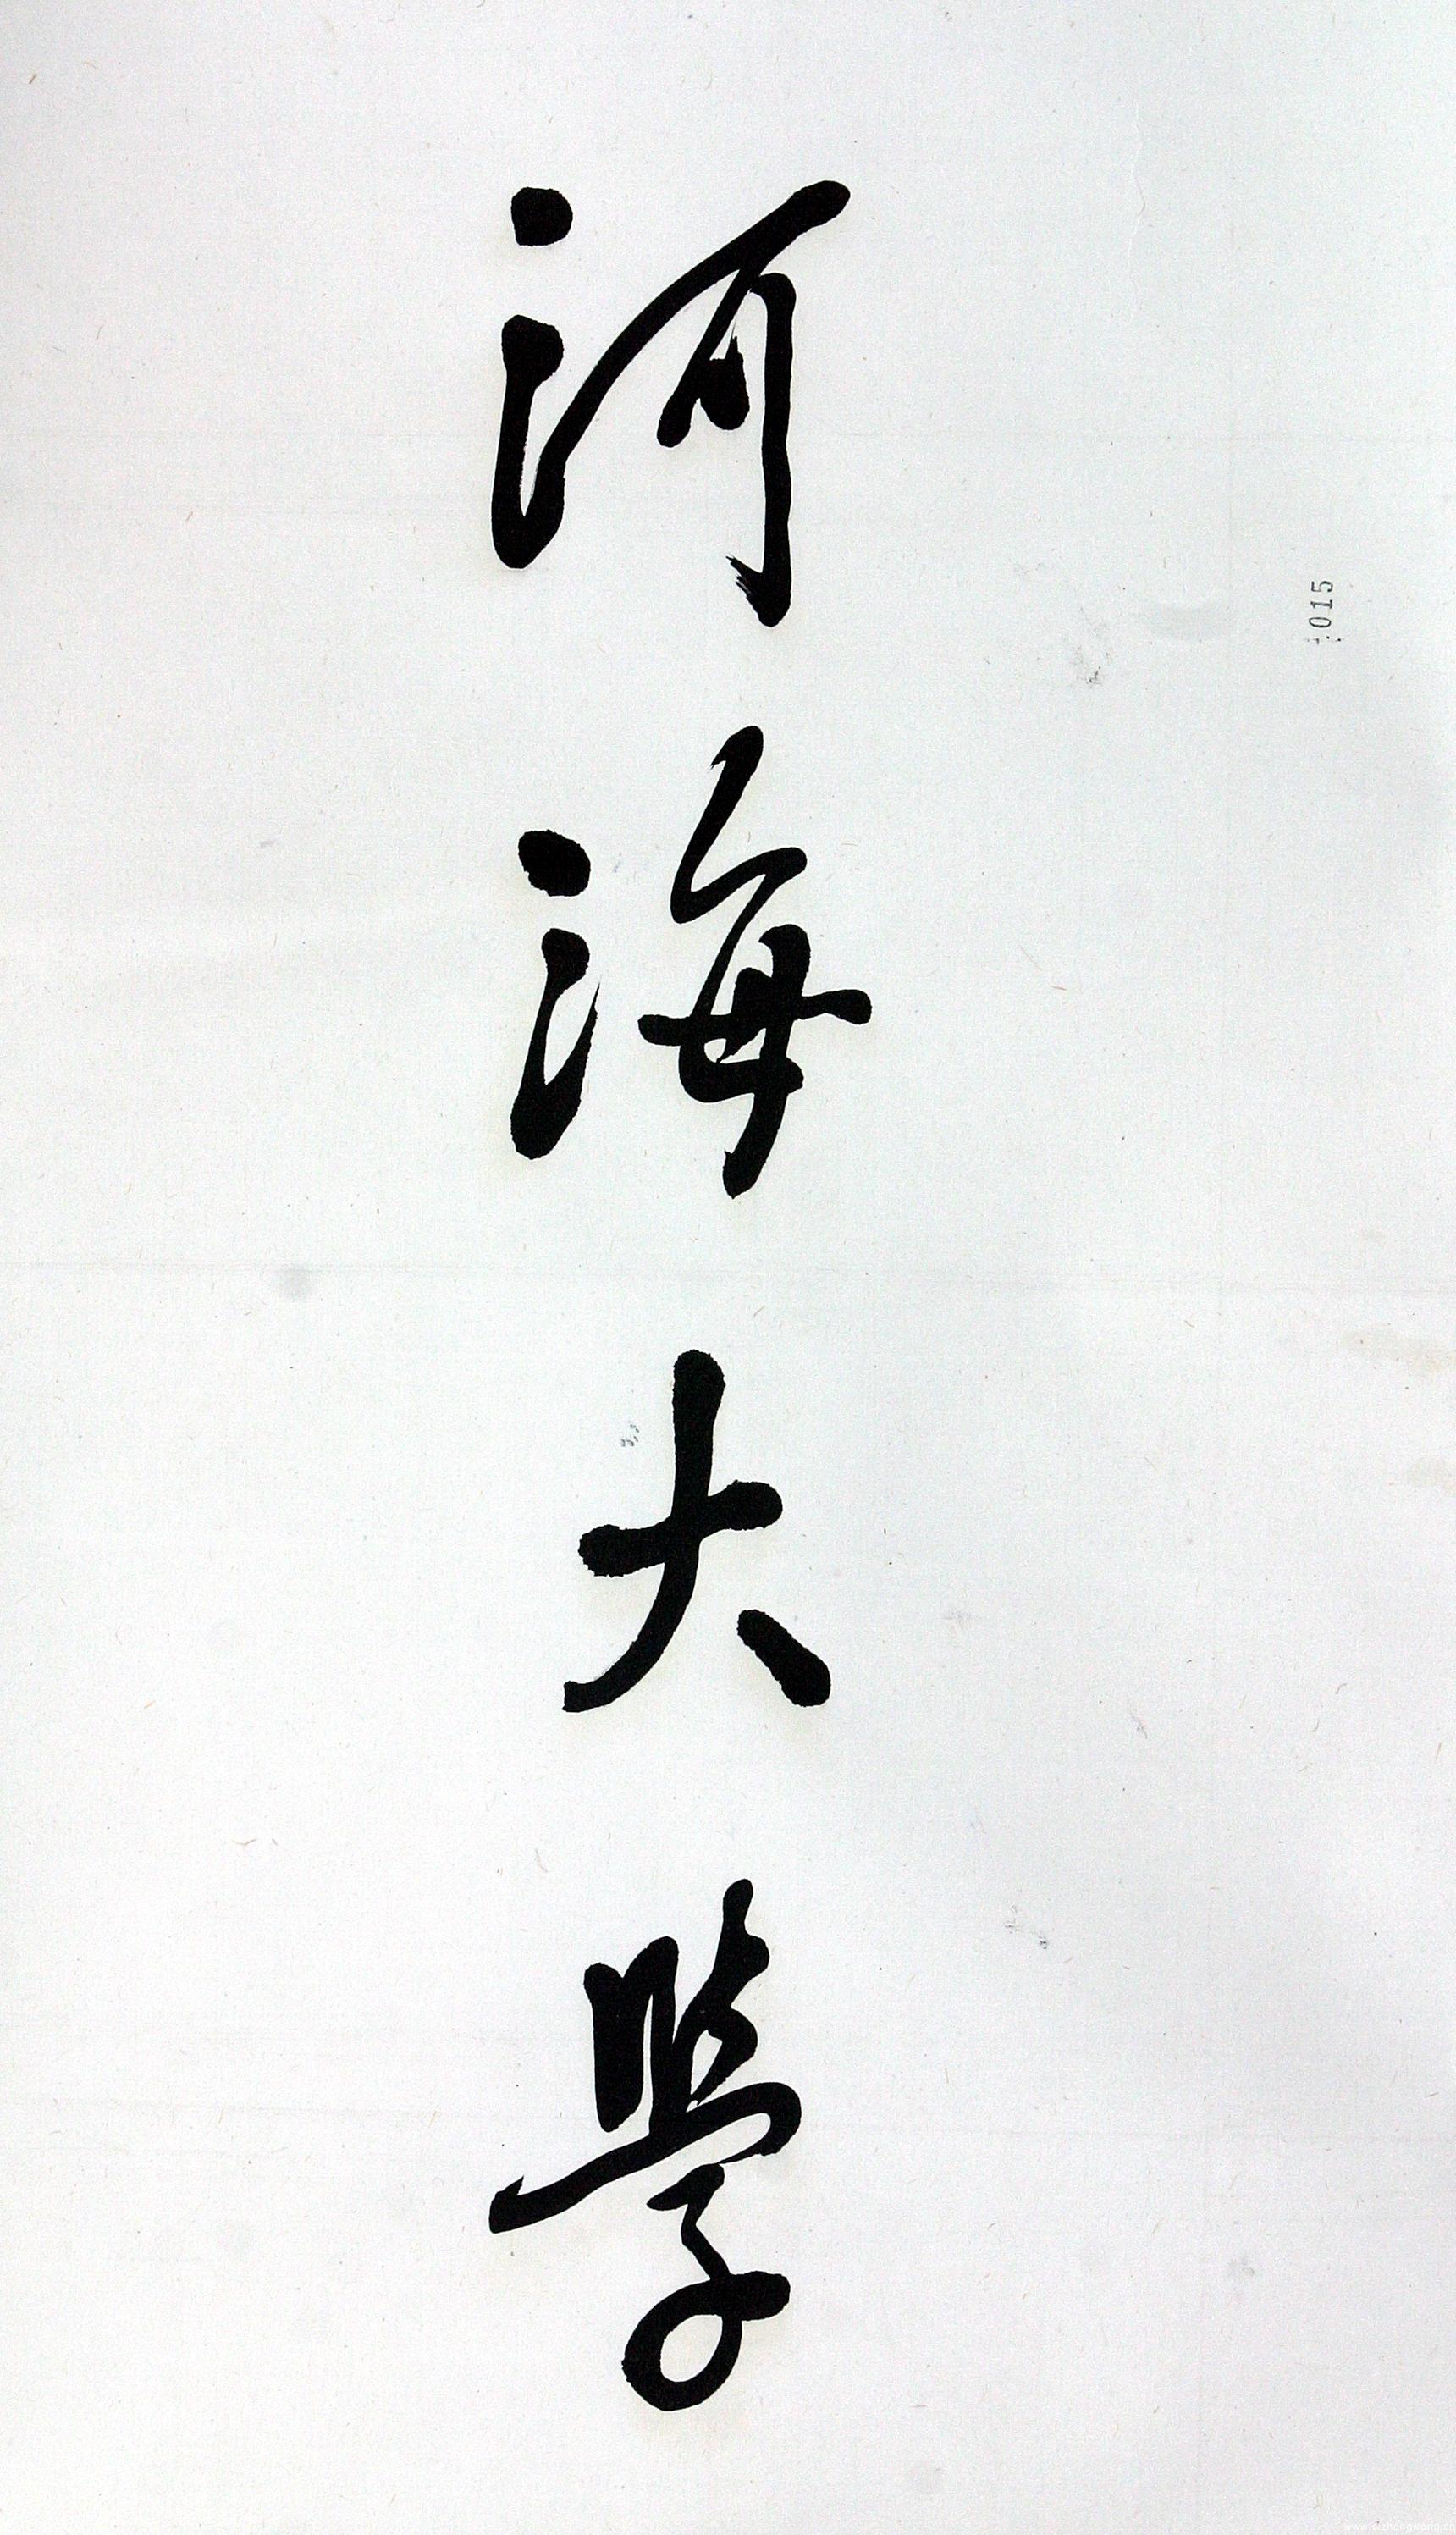 河海大學
015